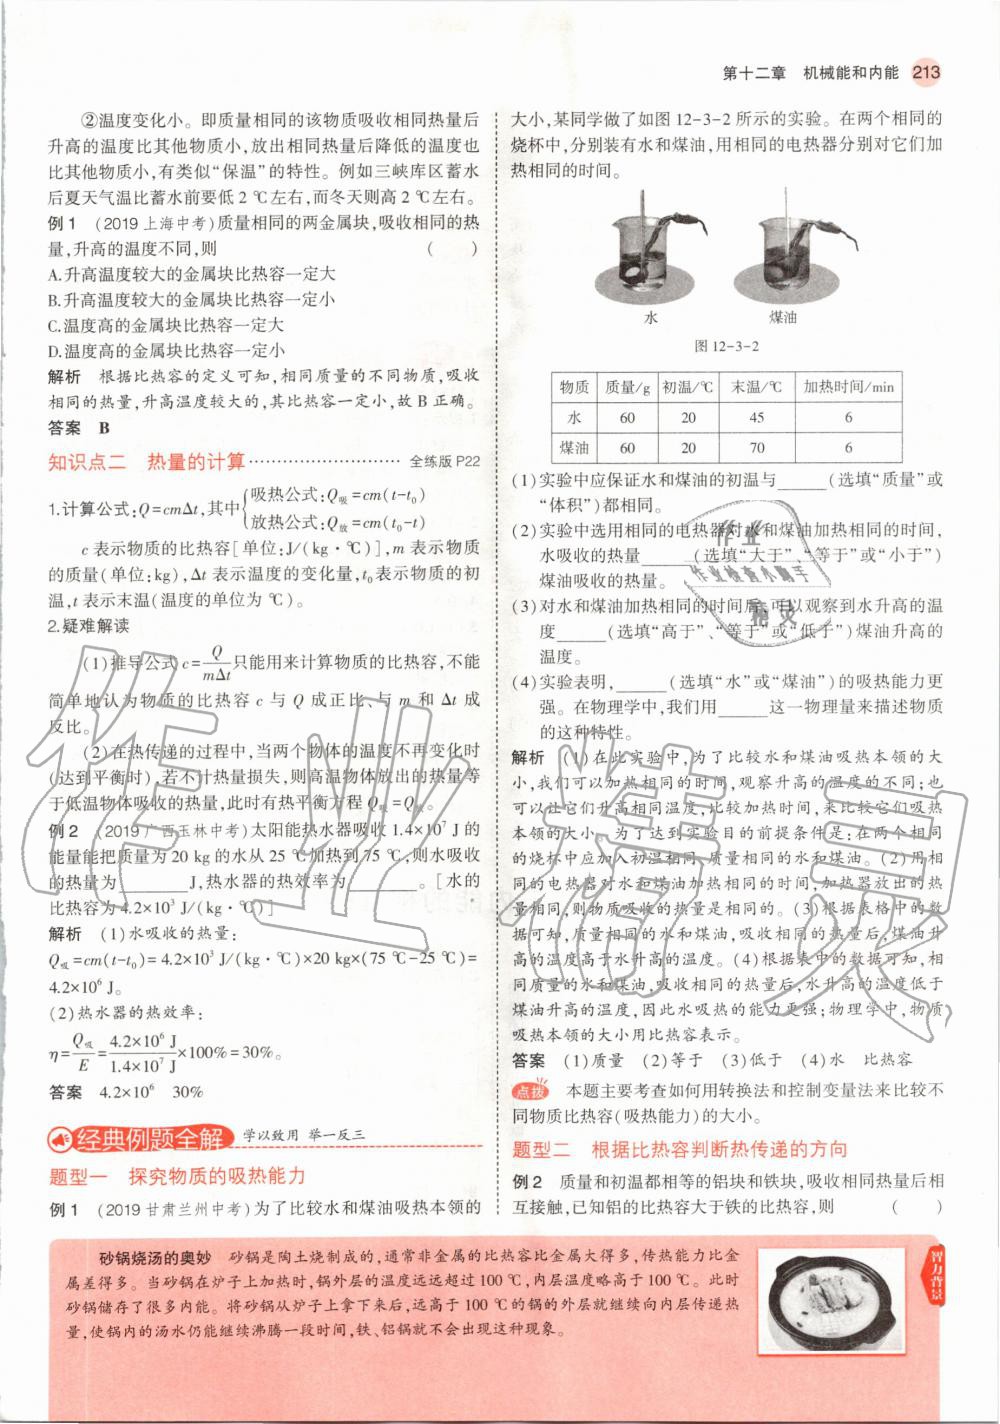 第十二章 机械能和内能 213
②温度变化小。即质量相同的该物质吸收相同热量后
升高的温度比其他物质小,放出相同热量后降低的温度也
比其他物质小,有类似“保温”的特性。例如三峡库区蓄水
后夏天气温比蓄水前要低2 ℃左右,而冬天则高2 ℃左右。
例1 (2019上海中考)质量相同的两金属块,吸收相同的热
量,升高的温度不同,则 ( )
A.升高温度较大的金属块比热容一定大
B.升高温度较大的金属块比热容一定小
C.温度高的金属块比热容一定大
D.温度高的金属块比热容一定小
解析 根据比热容的定义可知,相同质量的不同物质,吸收
相同的热量,升高温度较大的,其比热容一定小,故B正确。
答案 B
知识点二 热量的计算 ………………………… 全练版P22
1.计算公式:Q=cmΔt,其中{吸热公式:Q吸=cm(t-t₀)
放热公式:Q放=cm(t₀-t)
c表示物质的比热容[单位:J/(kg·℃)],m表示物质
的质量(单位:kg),Δt表示温度的变化量,t₀表示物质的初
温,t表示末温(温度的单位为℃)。
2.疑难解读
(1)推导公式c=Q/mΔt只能用来计算物质的比热容,不能
简单地认为物质的比热容c与Q成正比、与m和Δt成
反比。
(2)在热传递的过程中,当两个物体的温度不再变化时
(达到平衡时),若不计热量损失,则高温物体放出的热量等
于低温物体吸收的热量,此时有热平衡方程Q吸=Q放。
例2 (2019广西玉林中考)太阳能热水器吸收1.4×10⁷ J的
能量能把质量为20 kg的水从25 ℃加热到75 ℃,则水吸收
的热量为______J,热水器的热效率为______。[水的
比热容为4.2×10³ J/(kg·℃)]
解析 (1)水吸收的热量:
Q吸=cm(t-t₀)=4.2×10³ J/(kg·℃)×20 kg×(75 ℃-25 ℃)=
4.2×10⁶ J。
(2)热水器的热效率:
η=Q吸/E=4.2×10⁶ J/1.4×10⁷ J×100%=30%。
答案 4.2×10⁶ 30%
经典例题全解 学以致用 举一反三
题型一 探究物质的吸热能力
例1 (2019甘肃兰州中考)为了比较水和煤油吸热本领的
大小,某同学做了如图12-3-2所示的实验。在两个相同的
烧杯中,分别装有水和煤油,用相同的电热器分别对它们加
热相同的时间。
水 煤油
图12-3-2
物质 质量/g 初温/℃ 末温/℃ 加热时间/min
水 60 20 45 6
煤油 60 20 70 6
(1)实验中应保证水和煤油的初温与____(选填“质量”或
“体积”)都相同。
(2)实验中选用相同的电热器对水和煤油加热相同的时间,
水吸收的热量____(选填“大于”、“等于”或“小于”)
煤油吸收的热量。
(3)对水和煤油加热相同的时间后,可以观察到水升高的温
度____(选填“高于”、“等于”或“低于”)煤油升高的
温度。
(4)实验表明,____(选填“水”或“煤油”)的吸热能力更
强。在物理学中,我们用____这一物理量来描述物质
的这种特性。
解析 (1)在此实验中,为了比较水和煤油吸热本领的大
小,我们可以加热相同的时间,观察升高的温度的不同;也
可以让它们升高相同温度,比较加热时间,来比较它们吸热
本领的大小。为了达到实验目的前提条件是:在两个相同
的烧杯中应加入初温相同、质量相同的水和煤油。(2)用相
同的电热器对水和煤油加热相同的时间,加热器放出的热
量相同,则物质吸收的热量是相同的。(3)根据表格中的数
据可知,质量相同的水和煤油,吸收相同的热量后,煤油升
高的温度高于水升高的温度。(4)根据表中的数据可知,相
同质量的水和煤油,吸收相同的热量后,水升高的温度低于
煤油升高的温度,因此水吸热的能力更强;物理学中,物质
吸热本领的大小用比热容表示。
答案 (1)质量 (2)等于 (3)低于 (4)水 比热容
点拨 本题主要考查如何用转换法和控制变量法来比较不
同物质比热容(吸热能力)的大小。
题型二 根据比热容判断热传递的方向
例2 质量和初温都相等的铝块和铁块,吸收相同热量后相
互接触,已知铝的比热容大于铁的比热容,则 ( )
砂锅烧汤的奥妙 砂锅是陶土烧制成的,通常非金属的比热容比金属大得多,传热能力比金
属差得多。当砂锅在炉子上加热时,锅外层的温度远远超过100 ℃,内层温度略高于100 ℃。此时
砂锅储存了很多内能。将砂锅从炉子上拿下来后,远高于100 ℃的锅的外层就继续向内层传递热
量,使锅内的汤水仍能继续沸腾一段时间,铁、铝锅就不会出现这种现象。
智力背景
作业精灵
作业
作业检查小助手
精灵